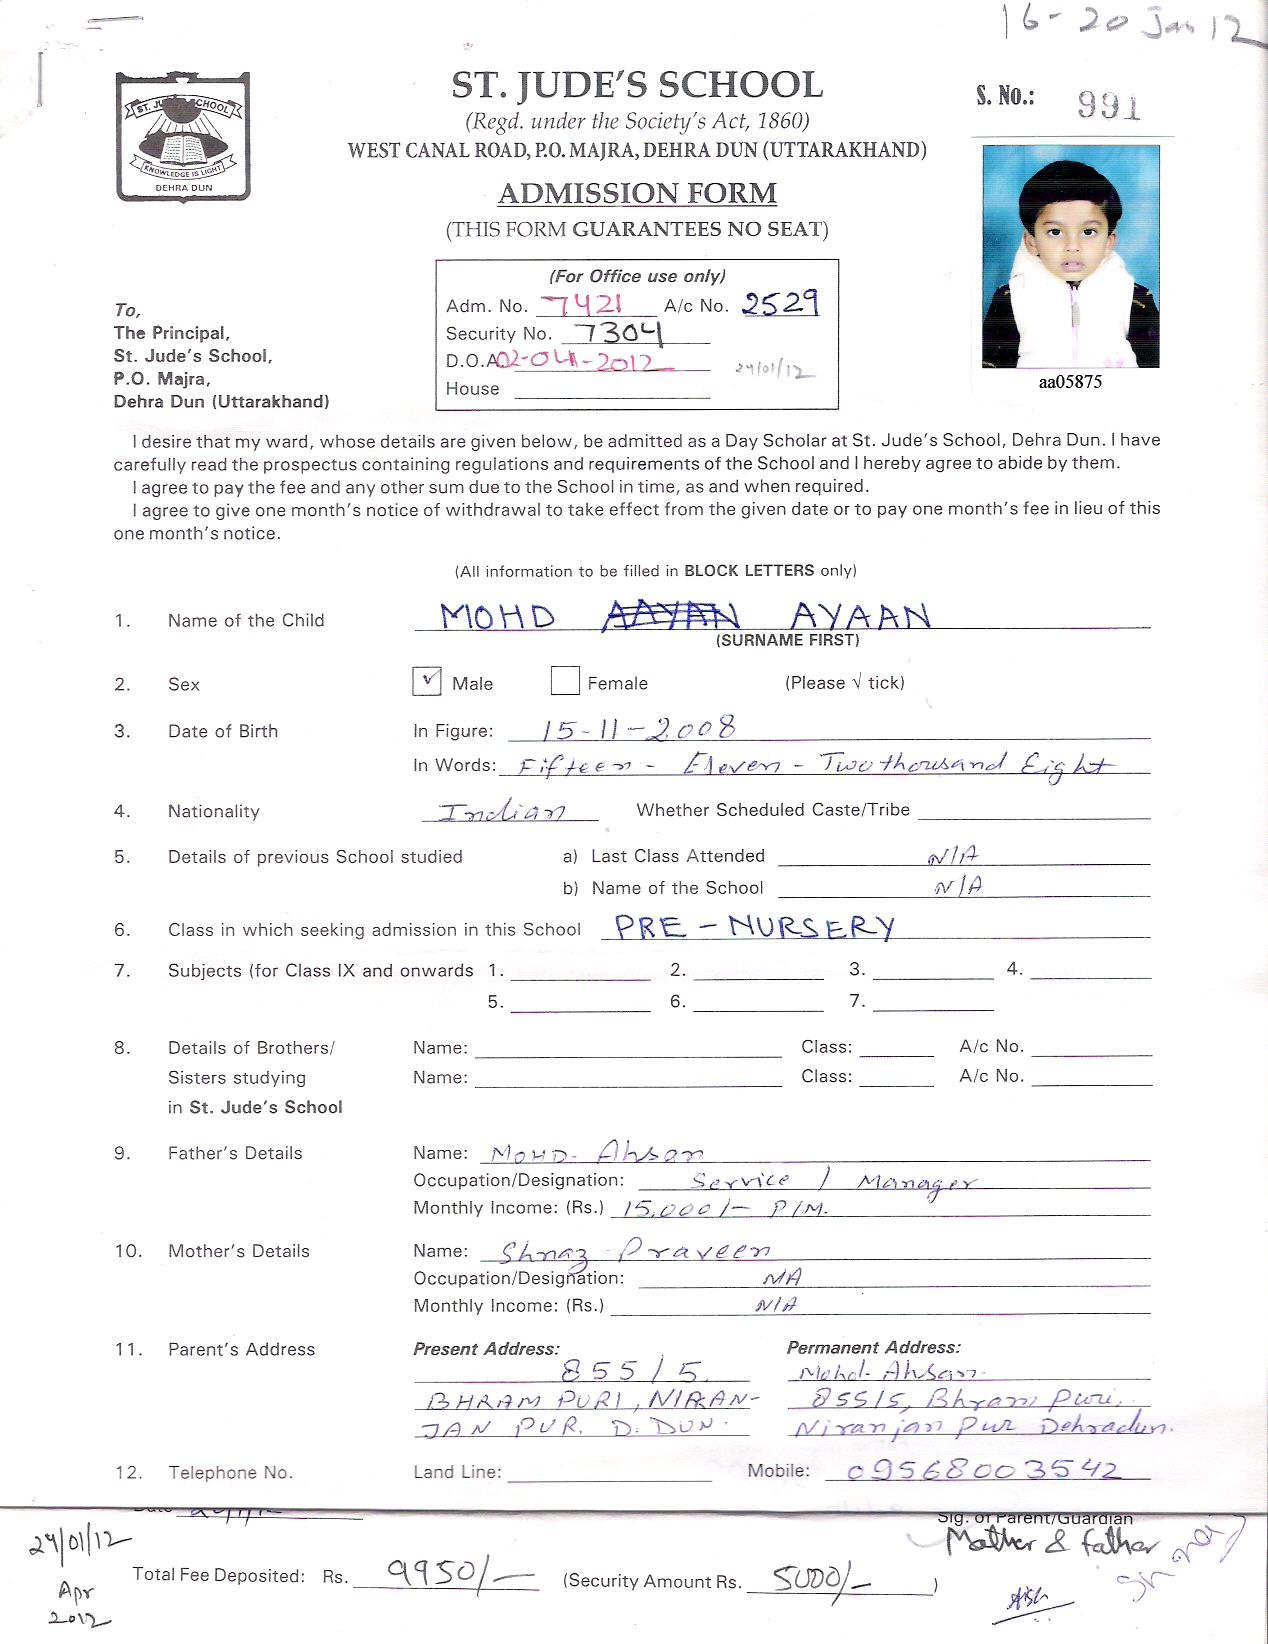 16-20 Jan 12
ST. JUDE'S SCHOOL
(Regd. under the Society's Act, 1860)
WEST CANAL ROAD, P.O. MAJRA, DEHRA DUN (UTTARAKHAND)
S. No.: 991
ST. JUDE'S SCHOOL
KNOWLEDGE IS LIGHT
DEHRA DUN
ADMISSION FORM
(THIS FORM GUARANTEES NO SEAT)
aa05875
(For Office use only)
Adm. No. 7421 A/c No. 2529
Security No. 7304
D.O.A 02-04-2012 24/01/12
House
To,
The Principal,
St. Jude's School,
P.O. Majra,
Dehra Dun (Uttarakhand)
I desire that my ward, whose details are given below, be admitted as a Day Scholar at St. Jude's School, Dehra Dun. I have
carefully read the prospectus containing regulations and requirements of the School and I hereby agree to abide by them.
I agree to pay the fee and any other sum due to the School in time, as and when required.
I agree to give one month's notice of withdrawal to take effect from the given date or to pay one month's fee in lieu of this
one month's notice.
(All information to be filled in BLOCK LETTERS only)
1. Name of the Child MOHD AAYAN AYAAN
(SURNAME FIRST)
2. Sex ✓ Male Female (Please √ tick)
3. Date of Birth In Figure: 15-11-2008
In Words: Fifteen - Eleven - Two thousand Eight
4. Nationality Indian Whether Scheduled Caste/Tribe
5. Details of previous School studied a) Last Class Attended N/A
b) Name of the School N/A
6. Class in which seeking admission in this School PRE-NURSERY
7. Subjects (for Class IX and onwards 1. 2. 3. 4.
5. 6. 7.
8. Details of Brothers/ Name: Class: A/c No.
Sisters studying Name: Class: A/c No.
in St. Jude's School
9. Father's Details Name: MOHD- Ahsan
Occupation/Designation: Service / Manager
Monthly Income: (Rs.) 15,000/- P/M.
10. Mother's Details Name: Shnaz Praveen
Occupation/Designation: NA
Monthly Income: (Rs.) N/A
11. Parent's Address Present Address: Permanent Address:
855/5 Mohd- Ahsan
BHRAM PURI, NIRAN- 855/5, Bhram Puri,
JAN PUR. D. DUN. Niranjan Pur Dehradun.
12. Telephone No. Land Line: Mobile: 09568003542
Sig. of Parent/Guardian
24/01/12 Mother & father
Total Fee Deposited: Rs. 9950/- (Security Amount Rs. 5000/- )
Apr
2012